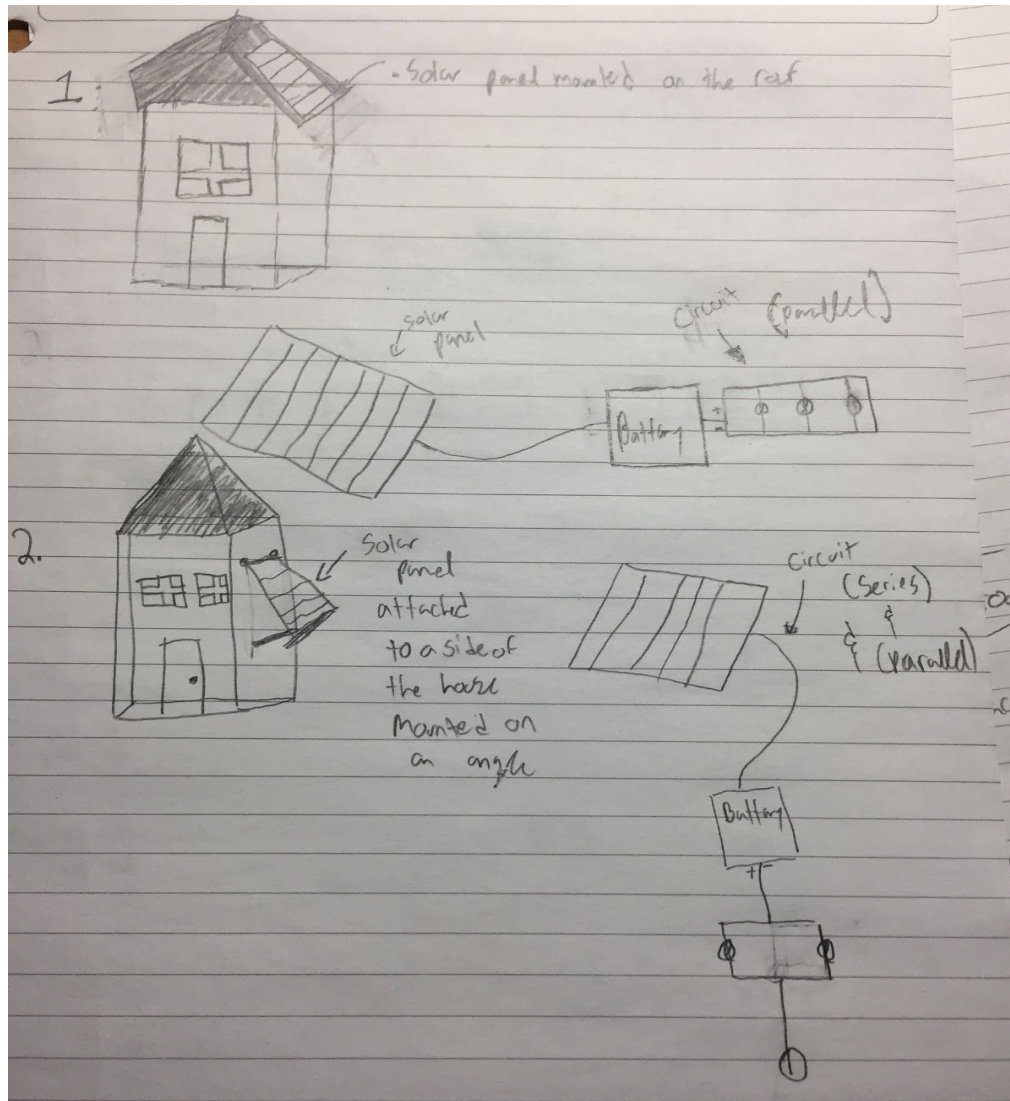 1.
- Solar panel mounted on the roof
Solar
panel
Circuit (parallel)
Battery
+
-
2.
Solar
panel
attached
to a side of
the house
Mounted on
an angle
Circuit
(Series)
&
& (parallel)
Battery
+ -